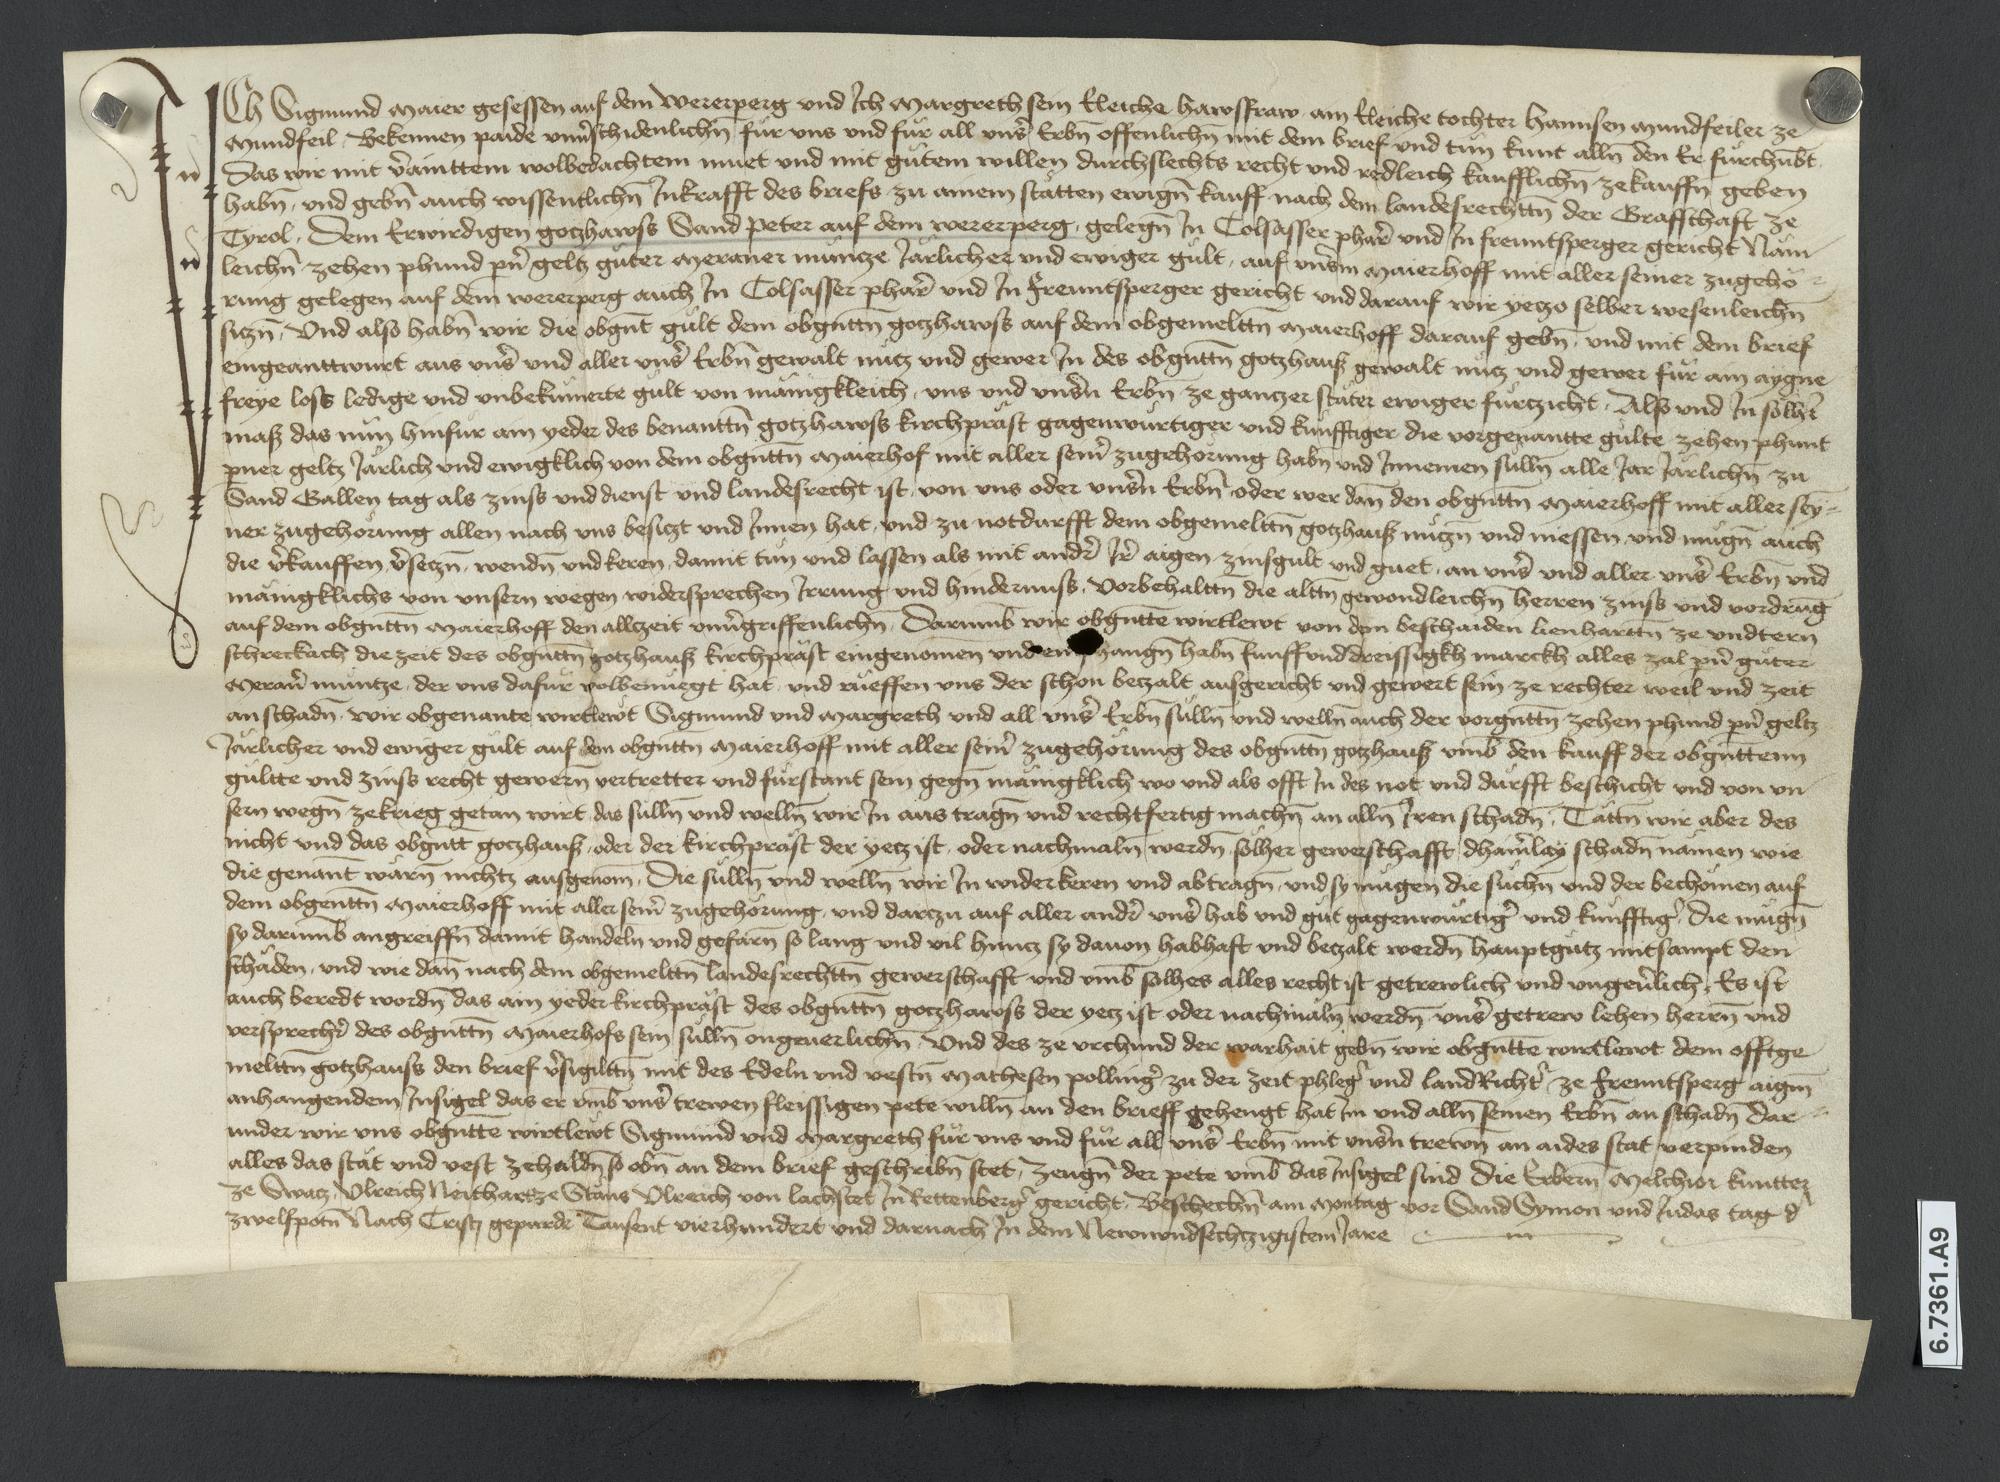 Ich Sigmund Maier gesessen auf dem Wererperg und Ich Margreth sein Eleiche hawsfraw am Eleiche tochter Hannsen Mundfeiler ze
Mundfeil Bekennen paide vnu͂schidenlichn̄ für vns vnd für all vnsʼ Erbn̄ offenlichn̄ mit dem brief vnd tün kunt alln̄ den Er fürchu͂bt
Das wir mit v̓ainttem wolbedachtem muet vnd mit gůtem willen durchslechts recht vnd redleich kaufflichn̄ zekauffn̄ geben
habn̄ vnd gebn̄ auch wissentlichn̄ Inkrafft des briefs zu ainem stätten ewign̄ kauff nach dem landesrechttn̄ der Graffschaft ze
Tyrol. Dem Erwirdigen gotzhawss Sand Peter auf dem wererperg gelegn̄ In Colsasser pharr̓ vnd In freuntsperger gericht Näm
leichn̄ zehen phund pn̓ geltz güter Meraner müncze Järlicher vnd ewiger gült, auf vnserm Maierhoff mit aller seiner zugehö-
rung gelegen auf dem wererperg auch In Colsasser pharr̓ vnd In Freuntsperger gericht vnd darauf wir yeczo selber wesenleichn̄
siczn̄, Vnd also habn̄ wir die obgnt̄ gült dem obgnttn̄ gotzhawss auf dem obgemelttn̄ Maierhoff darauf gebn̄, vnd mit dem brief
eingeanttwurt aus vnsʼ vnd aller vnsʼ Erbn̄ gewalt nütz vnd gewer In des obgnttn̄ gotzhauß gewalt nütz vnd gewer für ain aygne
freye loss ledige vnd vnbeküm̄erte gült von mänigkleich, vns vnd vnsʼn Erbn̄ ze ganczer stäter ewiger fürczicht. Also vnd In sölhʼr
maß das nün hinfür ain yeder des benanttn̄ gotzhawss kirchpräst gagenwürtiger vnd künfftiger die vorgenantte gülte zehen phunt
pner geltz Järlich vnd ewigklich von dem obgnttn̄ Maierhof mit aller seinʼ zugehörung habn̄ vnd Innemen sülln̄ alle Jar Järlichn̄ zu
Sand Gallen tag als zinss vnd dienst vnd landesrecht ist, von vns oder vnsʼn Erbn̄ oder wer dan̄ den obgnttn̄ Maierhoff mit aller sey-
ner zugehörung allen nach vns besiczt vnd Innen hat, vnd zu notdurfft dem obgemelttn̄ gotzhauß nüczn̄ vnd niessen, vnd mügn̄ auch
die v̓kauffen, v̓seczn̄, wendn̄ vnd keren, damit tün vnd lassen als mit andʼr Irʼ aigen zinsgült vnd guet, an vnsʼ vnd aller vnsʼ Erbn̄ vnd
mänigklichs von vnsern wegen widersprechen Irrung vnd hindernuss. Vorbehalttn̄ die alttn̄ gewondleichn̄ herren zinss vnd vordruḡ
auf dem obgnttn̄ Maierhoff den allczeit vnu͂griffenlichn̄. Darumb wir obgntte wirtlewt von dem beschaiden lienharttn̄ ze vndtern
schreckach die zeit des obgnttn̄ gotzhauß kirchpräst eingenomen vnd emphangn̄ habn̄ fünff vnd dreissigkh marckh alles zal pn̓ güter
Meranʼ müntze, der vns dafür volbenüegt hat, vnd rüeffen vns der schon beczalt ausgericht vnd gewert sein ze rechter weil vnd zeit
an schadn̄. wir obgenante wirtlewt Sigmund vnd Margreth vnd all vnsʼ Erbn̄ sülln̄ vnd welln̄ auch der vorgnttn̄ zehen phund pn̓ geltz
Järlicher vnd ewiger gült auf dem obgnttn̄ Maierhoff mit aller seinʼ zugehörung des obgnttn̄ gotzhauß vmb den kauff der obgnttenn
gültte vnd zinss recht gewern̄ vertretter vnd fürstant sein gegn̄ mänigklich wo vnd als offt In des not vnd dürfft beschicht vnd von vn
sern wegn̄ zekrieg getan wirt, das sülln̄ vnd welln̄ wir In aus tragn̄ vnd rechtfertig machn̄ an alln̄ Iren schadn̄. Tättn̄ wir aber des
nicht vnd das obgntt gotzhauß, oder der kirchpräst der yecz ist, oder nachmaln̄ werdn̄, sölher gewerschafft dhainʼlay schadn̄ nämen wie
die genant̄ wärn̄ nichtz ausgenom̄, Die sülln̄ vnd welln̄ wir In widerkeren vnd abtragn̄, vnd sy mügen die süchn̄ vnd der bechömen auf
dem obgenttn̄ Maierhoff mit aller seinʼ zugehörung, vnd darczu auf aller andʼr vnsʼ hab vnd güt gagenwürtigʼ vnd künfftigʼ. Die mügn̄
sy darumb angreiffn̄ damit handeln vnd gefarn̄ so lang vnd vil huncz sy dauon habhaft vnd beczalt werdn̄ hauptgütz mitsampt den
schäden, vnd wie dan̄ nach dem obgemelttn̄ landesrechttn̄ gewerschafft vnd vmb sölhes alles recht ist getrewlich vnd vngeuʼlich. Es ist
auch beredt wordn̄ das ain yeder kirchpräst des obgnttn̄ gotzhawss der yecz ist oder nachmaln̄ werdn̄, vnsʼ getrew lehen herrn̄ vnd
versprechʼr des obgnttn̄ Maierhofs sein sülln̄ ongeuerlichn̄. Vnd des ze vrchund der warhait gebn̄ wir obgntte wirtlewt dem offtge
melttn̄ gotzhauss den brief v̓sigilttn̄ mit des Edeln vnd vestn̄ Mathesen pollingʼ zu der zeit phlegʼ vnd landRichtʼ ze freuntsperg aigm̄
anhangendem Insigel das er vmb vnsʼ trewen fleissigen pete willn̄ an den brieff gehengt hat Im vnd alln̄ seinen Erbn̄ an schadn̄ Dar-
under wir vns obgntte wirtlewt Sigmund vnd Margreth für vns vnd für all vnsʼ Erbn̄ mit vnsʼn trewn̄ an aides stat verpinden
alles das stät vnd vest zehaldn̄ so obn̄ an dem brief geschribn̄ stet, Zeugn̄ der pete vmb das Insigel sind Die Erbern̄ Melchior kuntter
ze Swacz, Vlreich Neithart ze Stans Vlreich von lachstet In Rettenbergʼ gericht. Beschechn̄ am Montag vor Sand Symon vnd Judas tag dʼ
zwelfpotn̄ Nach Cristz gepurde Tausent vierhundert vnd darnach In dem Newnvndsechtzigistem Jare
6.7361.A9